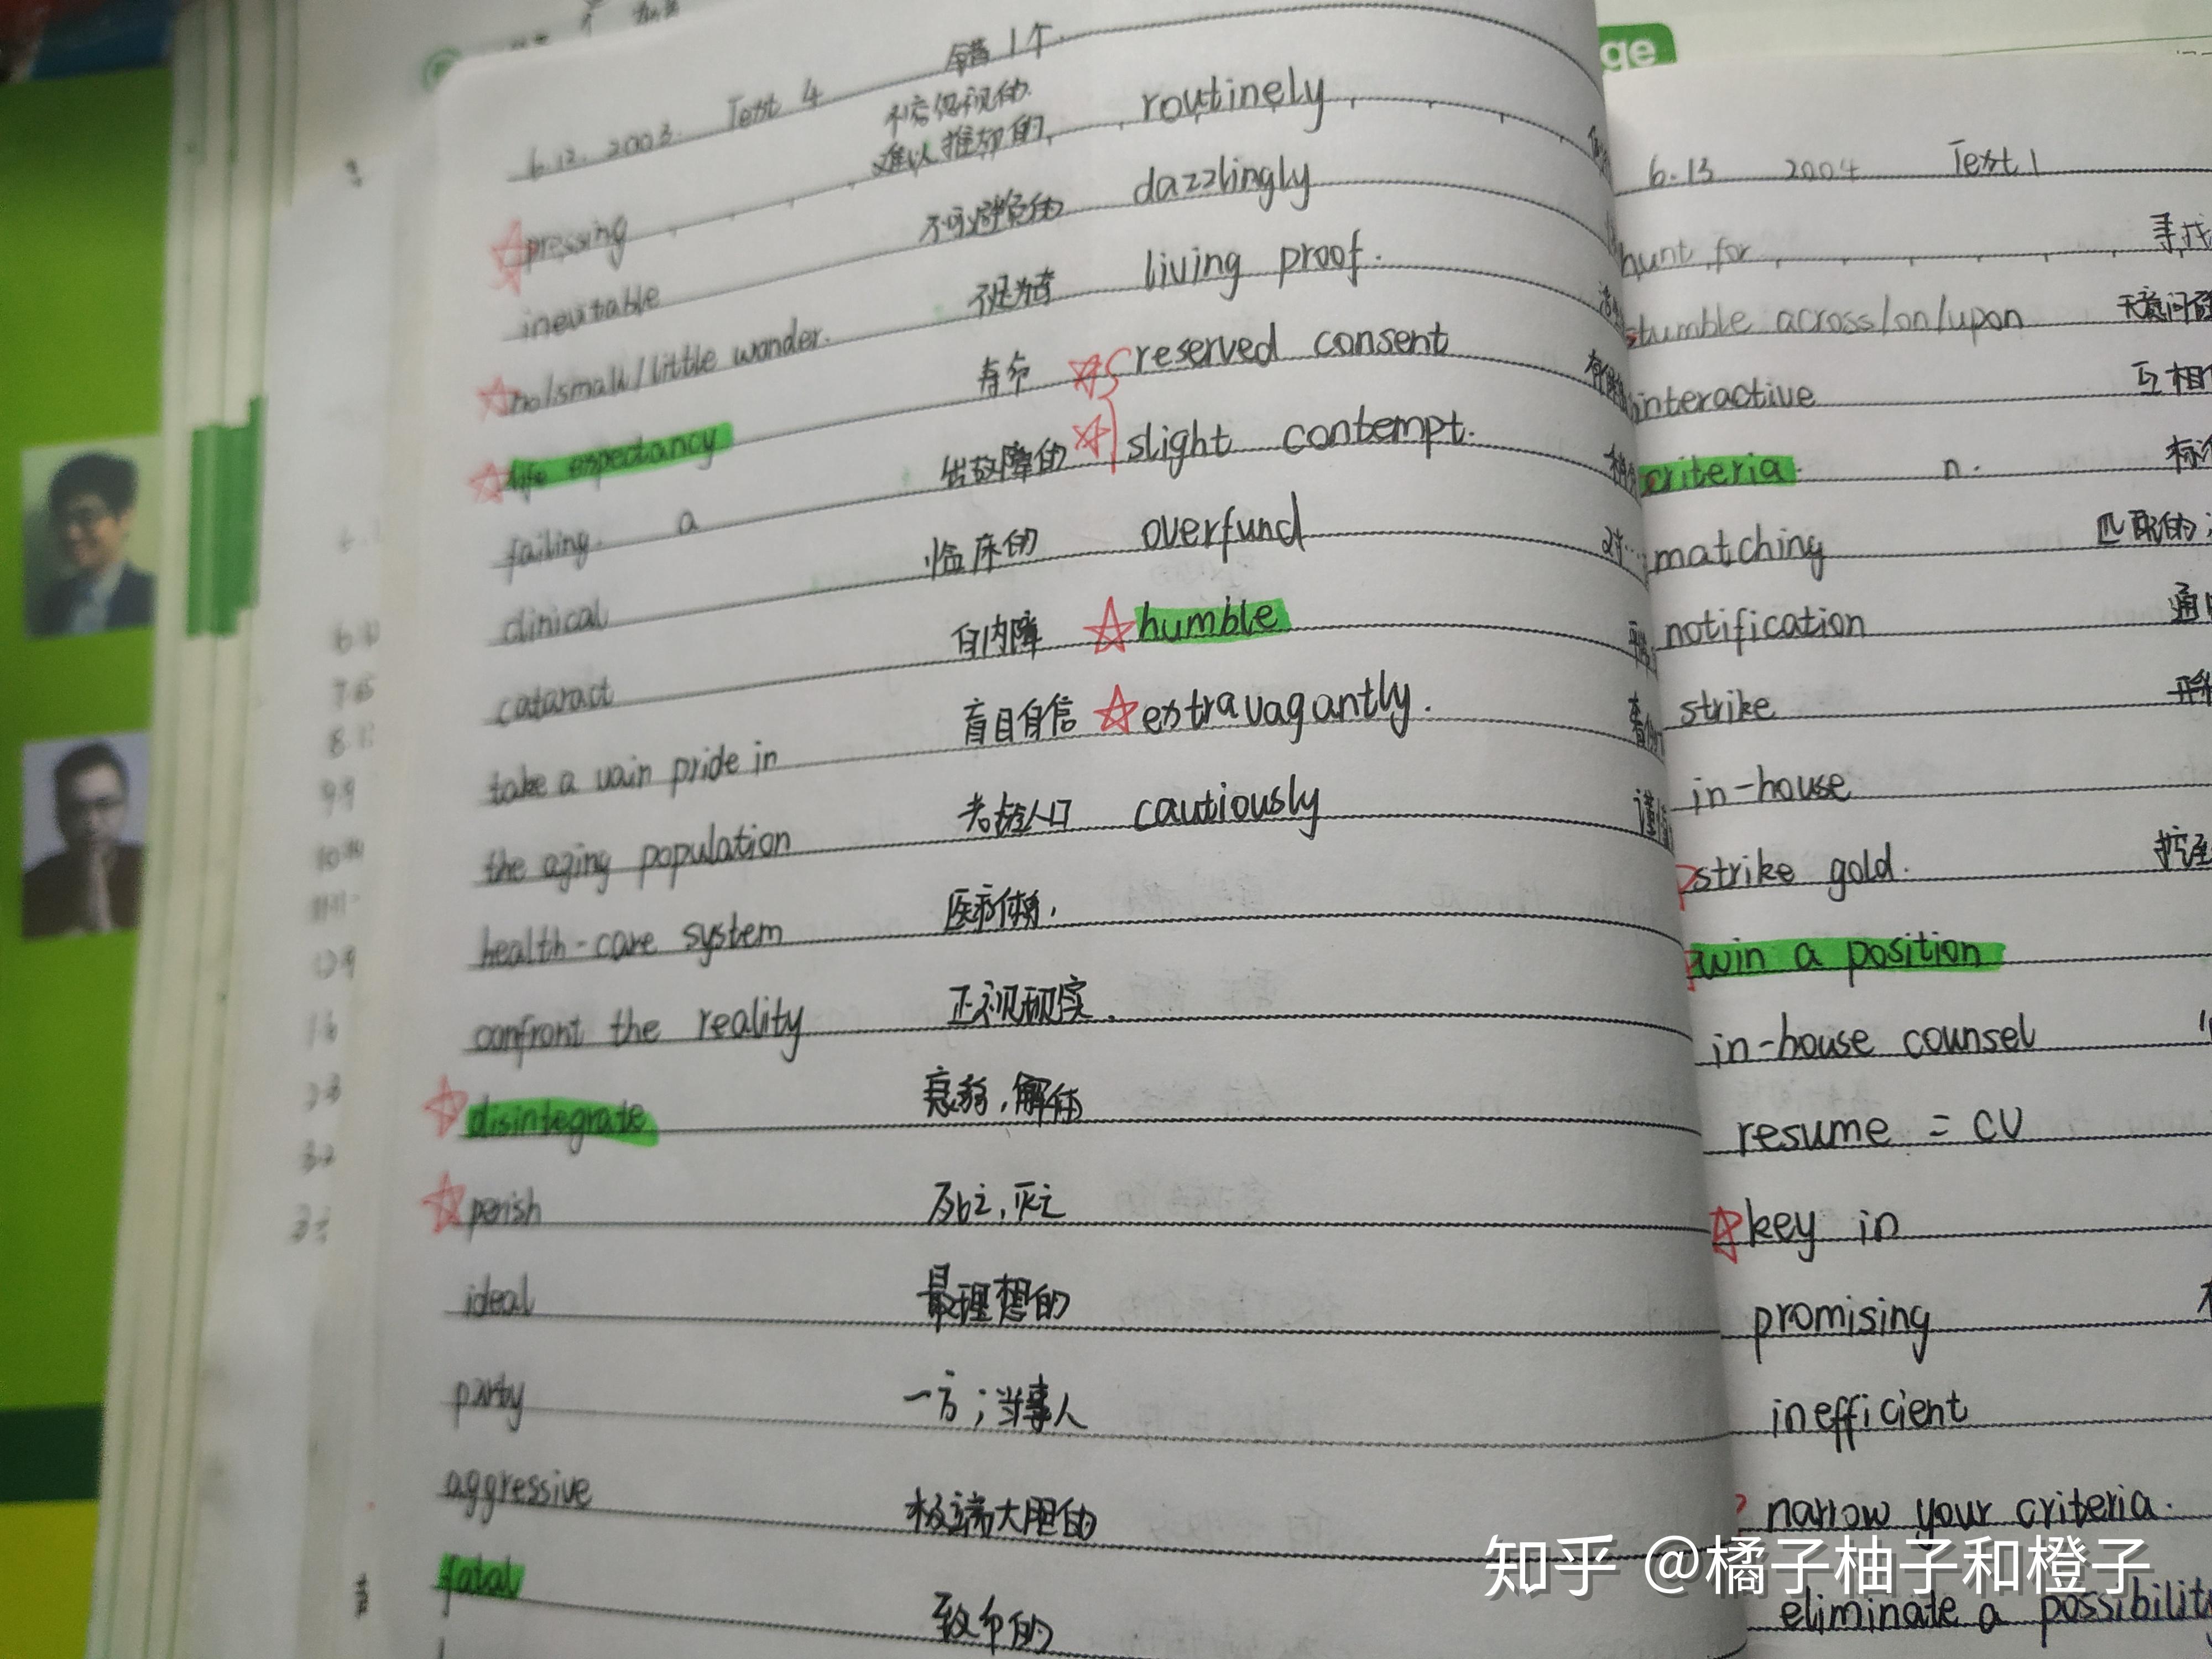 错1个
6.12. 2003. Test 4
不容忽视的
难以推却的
pressing
inevitable 不可避免的
no/small/little wonder. 不足为奇
life expectancy 寿命
failing. a 出故障的
clinical 临床的
cataract 白内障
take a vain pride in 盲目自信
the aging population 老龄人口
health-care system 医疗体系.
confront the reality 正视现实.
disintegrate 衰弱,解体
perish 死亡,灭亡
ideal 最理想的
party 一方;当事人
aggressive 极端大胆的
fatal 致命的
routinely
dazzlingly
living proof.
reserved consent
slight contempt.
overfund
humble
extravagantly.
cautiously
ge
6.13 2004 Test 1
hunt for 寻找
stumble across/on/upon
interactive 互相
criteria n. 标准
matching 匹配的
notification 通
strike
in-house
strike gold. 挖
win a position
in-house counsel
resume = CV
key in
promising
inefficient
narrow your criteria.
eliminate a possibility
知乎 @橘子柚子和橙子